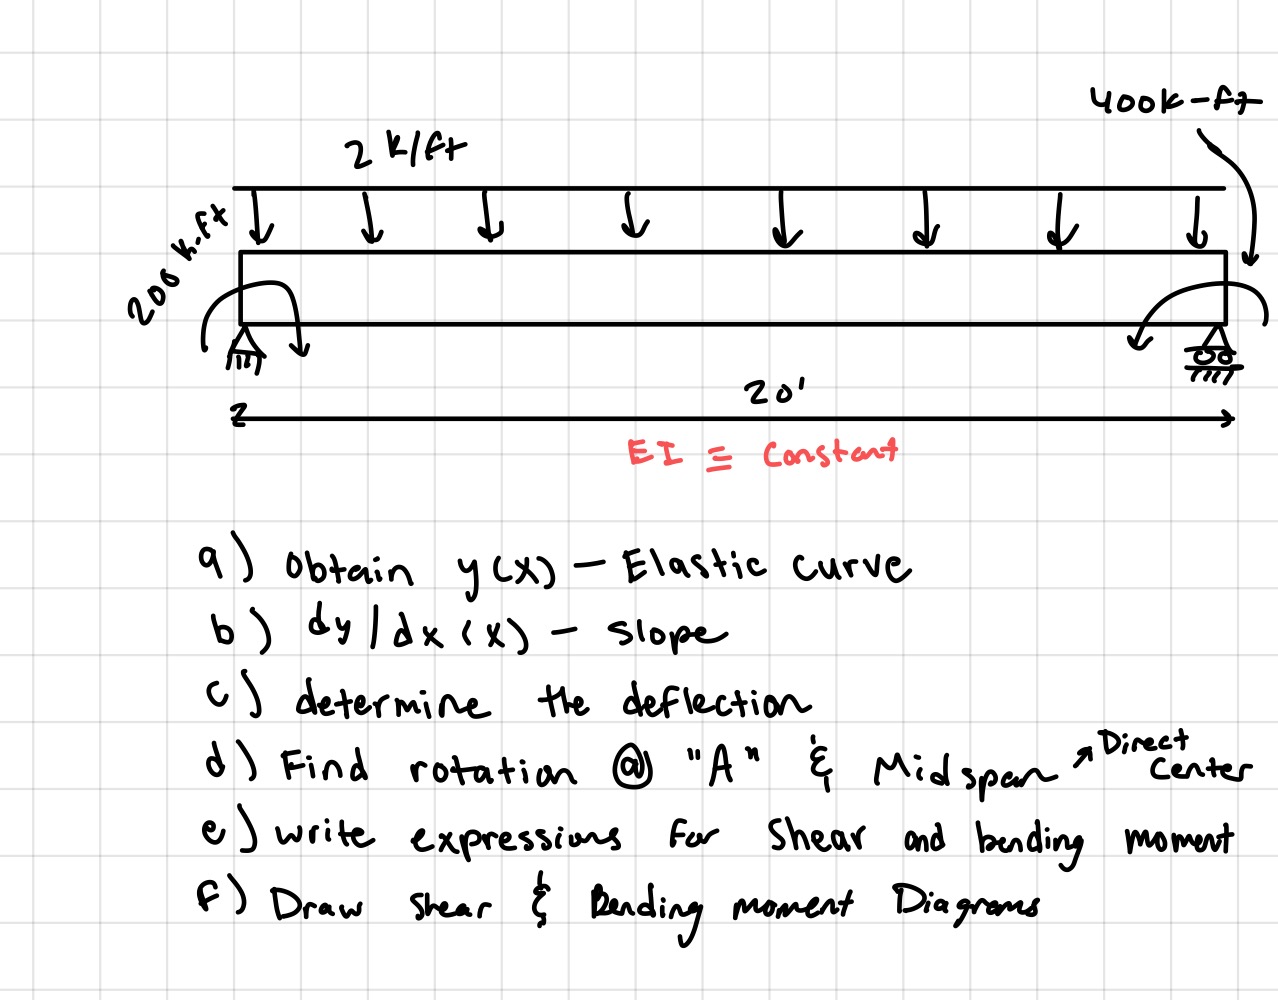 400k-ft
2 k/ft
200 k-ft
20'
EI ≡ Constant
a) Obtain y(x) - Elastic curve
b) dy/dx(x) - slope
c) determine the deflection
d) Find rotation @ "A" & Midspan ↗ Direct Center
e) write expressions for Shear and bending moment
f) Draw shear & Bending moment Diagrams